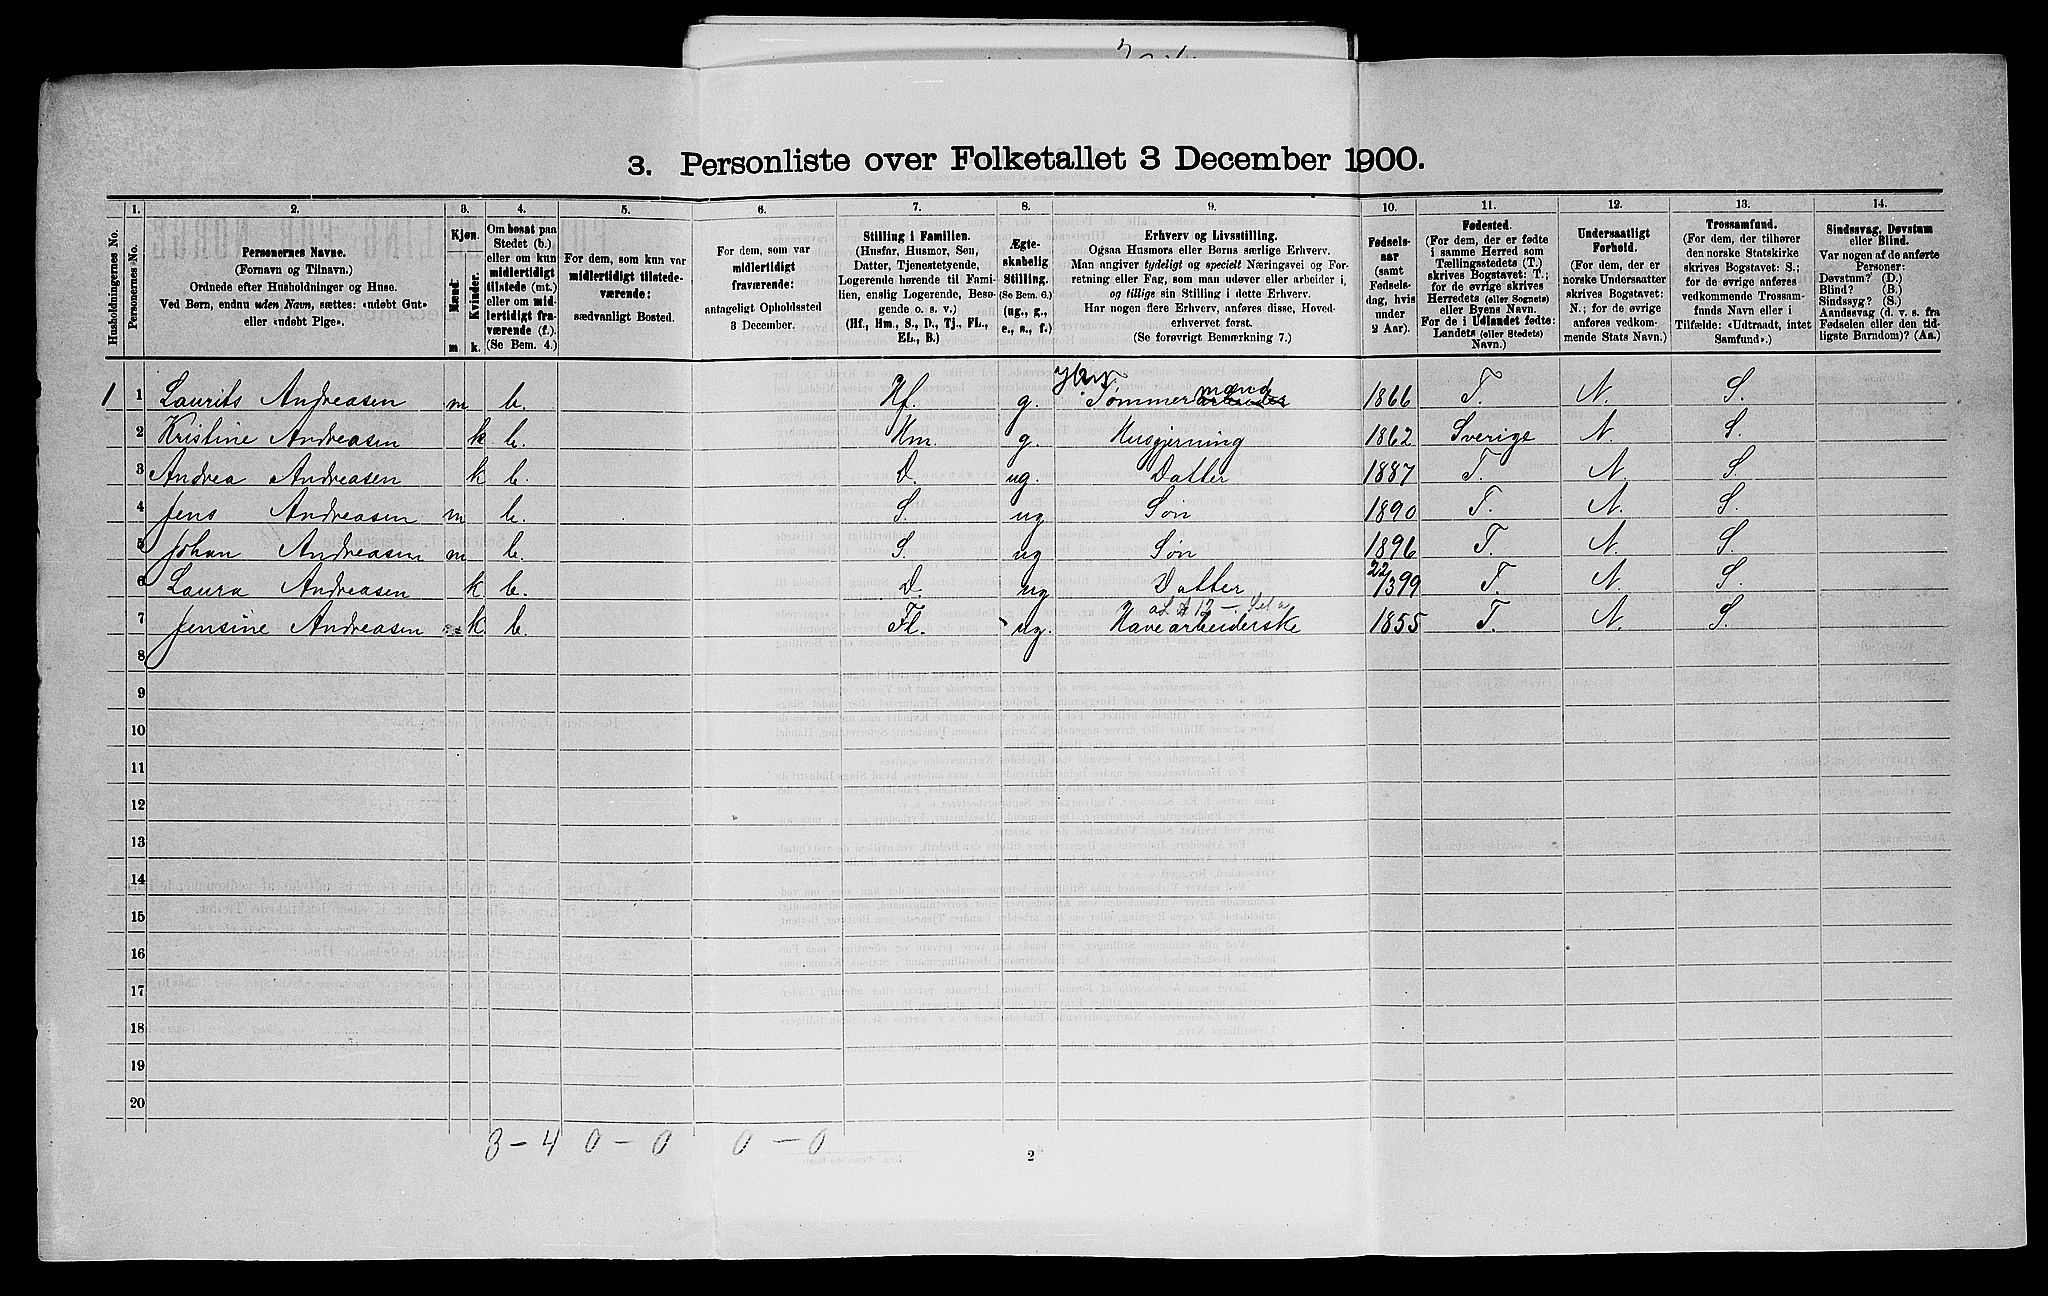 3. Personliste over Folketallet 3 December 1900.
1. 2. 3. 4. 5. 6. 7. 8. 9. 10. 11. 12. 13. 14.
Husholdningernes No.
Personernes No.
Personernes Navne.
(Fornavn og Tilnavn.)
Ordnede efter Husholdninger og Huse.
Ved Børn, endnu uden Navn, sættes: «udøbt Gut»
eller «udøbt Pige».
Kjøn.
Mænd. Kvinder.
m. k.
Om bosat paa
Stedet (b.)
eller om kun
midlertidigt
tilstede (mt.)
eller om mid-
lertidigt fra-
værende (f.)
(Se Bem. 4.)
For dem, som kun var
midlertidigt tilstede-
værende:
sædvanligt Bosted.
For dem, som var
midlertidigt
fraværende:
antageligt Opholdssted
3 December.
Stilling i Familien.
(Husfar, Husmor, Søn,
Datter, Tjenestetyende,
Logerende hørende til Fami-
lien, enslig Logerende, Besø-
gende o. s. v.)
(Hf., Hm., S., D., Tj., FL.,
EL., B.)
Ægte-
skabelig
Stilling.
(Se Bem. 6.)
(ug., g.,
e., s., f.)
Erhverv og Livsstilling.
Ogsaa Husmors eller Børns særlige Erhverv.
Man angiver tydeligt og specielt Næringsvei og For-
retning eller Fag, som man udøver eller arbeider i,
og tillige sin Stilling i dette Erhverv.
Har nogen flere Erhverv, anføres disse, Hoved-
erhvervet først.
(Se forøvrigt Bemærkning 7.)
Fødsels-
aar
(samt
Fødsels-
dag, hvis
under
2 Aar).
Fødested.
(For dem, der er fødte
i samme Herred som
Tællingsstedets (T.)
skrives Bogstavet: T.;
for de øvrige skrives
Herredets (eller Sognets)
eller Byens Navn.
For de i Udlandet fødte:
Landets (eller Stedets)
Navn.)
Undersaatligt
Forhold.
(For dem, der er
norske Undersaatter
skrives Bogstavet:
N.; for de øvrige
anføres vedkom-
mende Stats Navn.)
Trossamfund.
(For dem, der tilhører
den norske Statskirke
skrives Bogstavet: S.;
for de øvrige anføres
vedkommende Trossam-
funds Navn eller i
Tilfælde: «Udtraadt, intet
Samfund».)
Sindssvag, Døvstum
eller Blind.
Var nogen af de anførte
Personer:
Døvstum? (D.)
Blind? (B.)
Sindssyg? (S.)
Aandssvag (d. v. s. fra
Fødselen eller den tid-
ligste Barndom)? (Aa.)
1 1 Laurits Andreasen m b. Hf. g. Tømmermand 1866 T. N. S.
2 Kristine Andreasen k b. Hm. g. Husgjerning 1862 Sverige N. S.
3 Andrea Andreasen k b. D. ug. Datter 1887 T. N. S.
4 Jens Andreasen m b. S. ug Søn 1890 T. N. S.
5 Johan Andreasen m b. S. ug Søn 1896 T. N. S.
6 Laura Andreasen k b. D. ug Datter 22/3 99 T. N. S.
7 Jensine Andreasen k. b. Fl. ug. Havearbeiderske 1855 T. N. S.
8
9
10
11
12
13
14
15
16
17
18
19
20
3 - 4 0 - 0 0 - 0
2